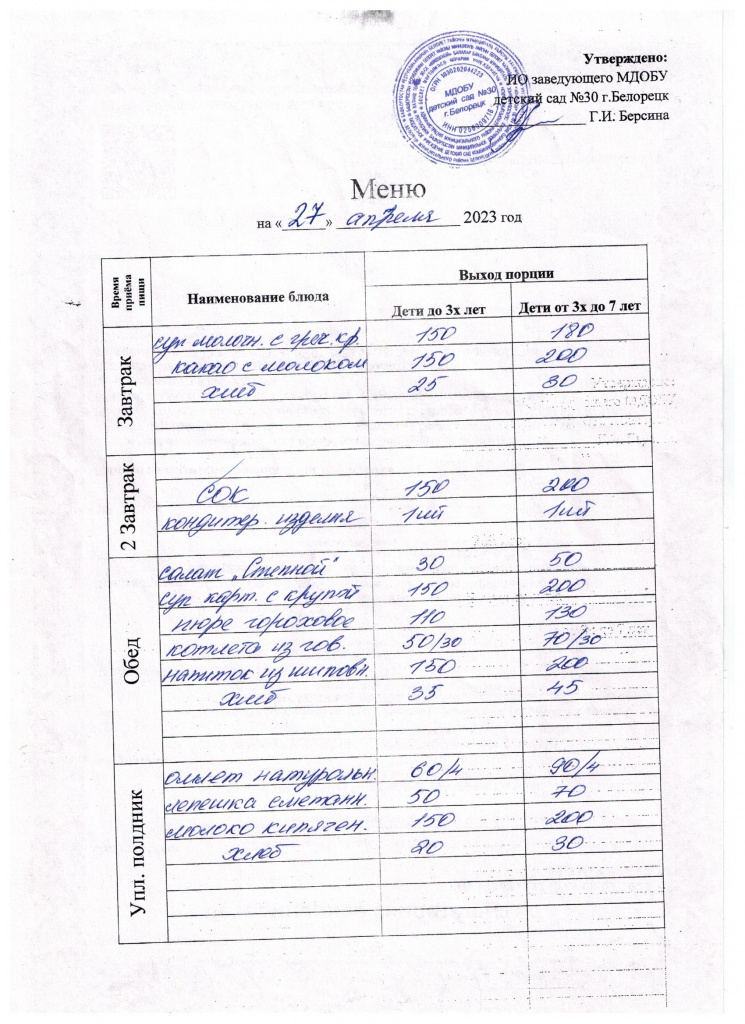 Утверждено:
ИО заведующего МДОБУ
детский сад №30 г.Белорецк
Г.И. Берсина
МДОБУ
детский сад №30
г.Белорецк
Меню
на «27» апреля 2023 год
Время приёма пищи Наименование блюда Выход порции
Дети до 3х лет Дети от 3х до 7 лет
Завтрак
суп молочн. с греч. кр. 150 180
какао с молоком 150 200
хлеб 25 30
2 Завтрак
сок 150 200
кондитер. изделия 1шт 1шт
Обед
салат „Степной" 30 50
суп карт. с крупой 150 200
пюре гороховое 110 130
котлета из гов. 50/30 70/30
напиток из шиповн. 150 200
хлеб 35 45
Упл. полдник
омлет натуральн. 60/4 90/4
лепешка сметанн. 50 70
молоко кипячен. 150 200
хлеб 20 30